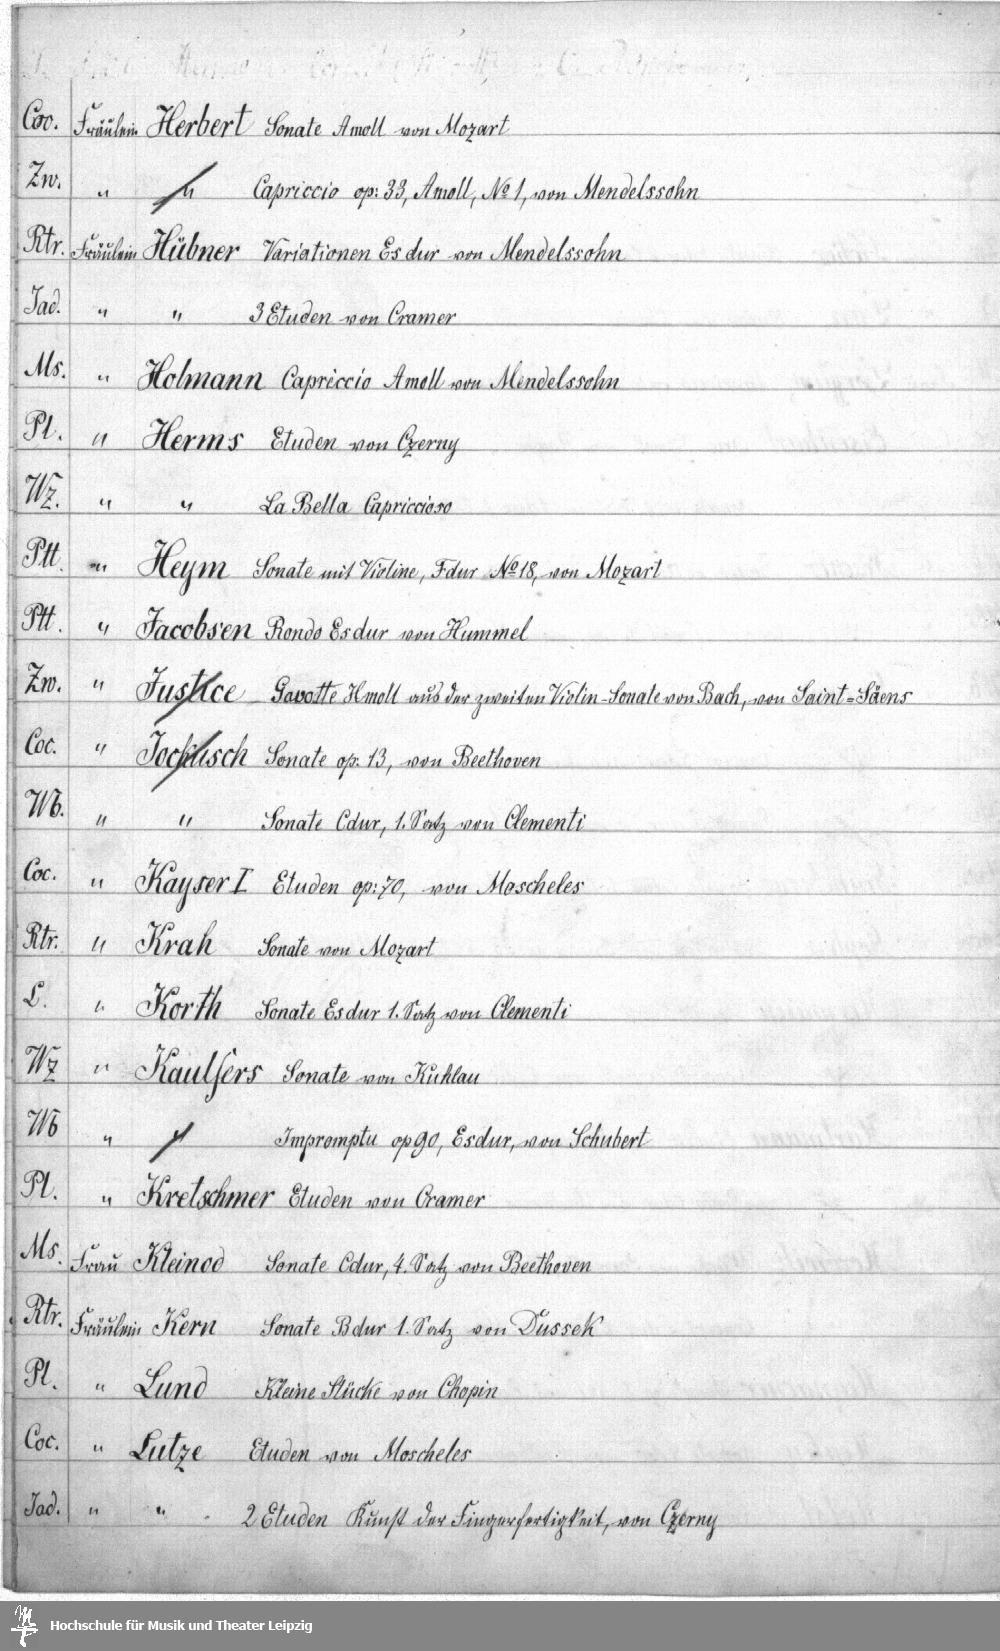 Coc. Fräulein Herbert Sonate Amoll von Mozart
Zw. " " Capriccio op: 33, Amoll, No 1, von Mendelssohn
Rtr. Fräulein Hübner Variationen Es dur von Mendelssohn
Jad. " " 3 Etuden von Cramer
Ms. " Holmann Capriccio Amoll von Mendelssohn
Pl. " Herms Etuden von Czerny
Wz. " " La Bella Capricciosa
Ptt. " Heym Sonate mit Violine, Fdur No 18, von Mozart
Ptt. " Jacobsen Rondo Esdur von Hummel
Zw. " Justice Gavotte Hmoll aus der zweiten Violin-Sonate von Bach, von Saint=Säens
Coc. " Jockisch Sonate op. 13, von Beethoven
Wb. " " Sonate Cdur, 1. Satz von Clementi
Coc. " Kayser I Etuden op: 70, von Moscheles
Rtr. " Krah Sonate von Mozart
L. " Korth Sonate Esdur 1. Satz von Clementi
Wz " Kaulfers Sonate von Kuhlau
Wb " " Impromptu op 90, Esdur, von Schubert
Pl. " Kretschmer Etuden von Cramer
Ms. Frau Kleinod Sonate Cdur, 4. Satz von Beethoven
Rtr. Fräulein Kern Sonate Bdur 1. Satz von Dussek
Pl. " Lund Kleine Stücke von Chopin
Coc. " Lutze Etuden von Moscheles
Jad. " " 2 Etuden Kunst der Fingerfertigkeit, von Czerny
Hochschule für Musik und Theater Leipzig